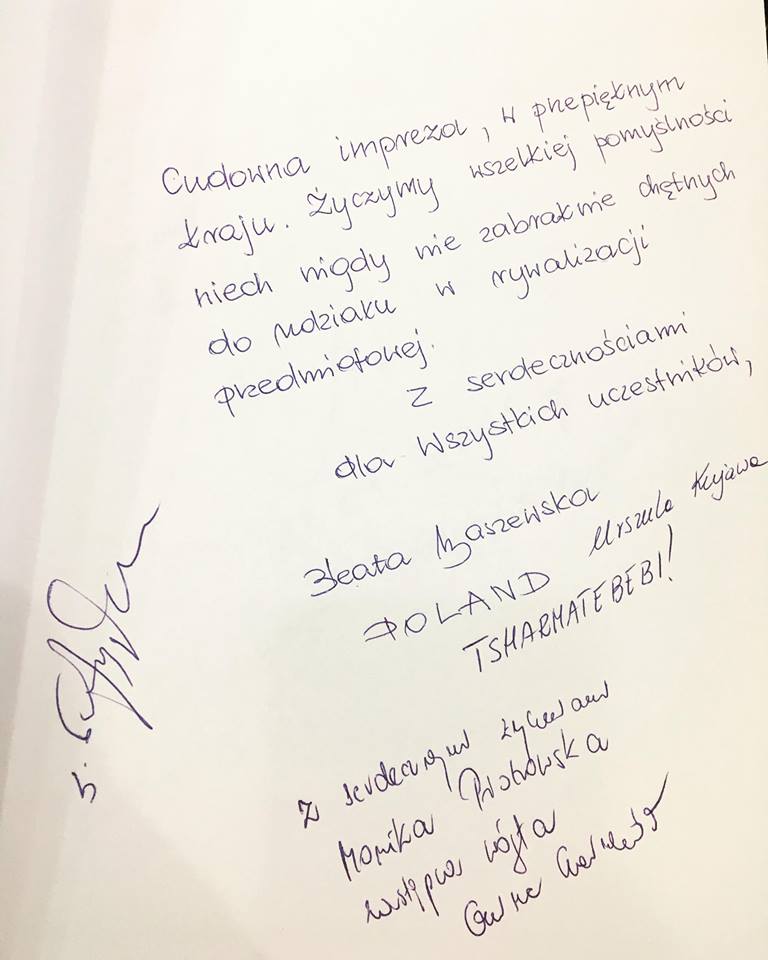 Cudowna impreza, w przepięknym
kraju. Życzymy wszelkiej pomyślności
niech nigdy nie zabraknie chętnych
do udziału w rywalizacji
przedmiotowej.
Z serdecznościami
dla Wszystkich uczestników,
Beata Urszula Kujawa
POLAND
TSHARMATEBEBI!
Z serdecznymi życzeniami
Monika Piotrowska
zastępca wójta
Gminy